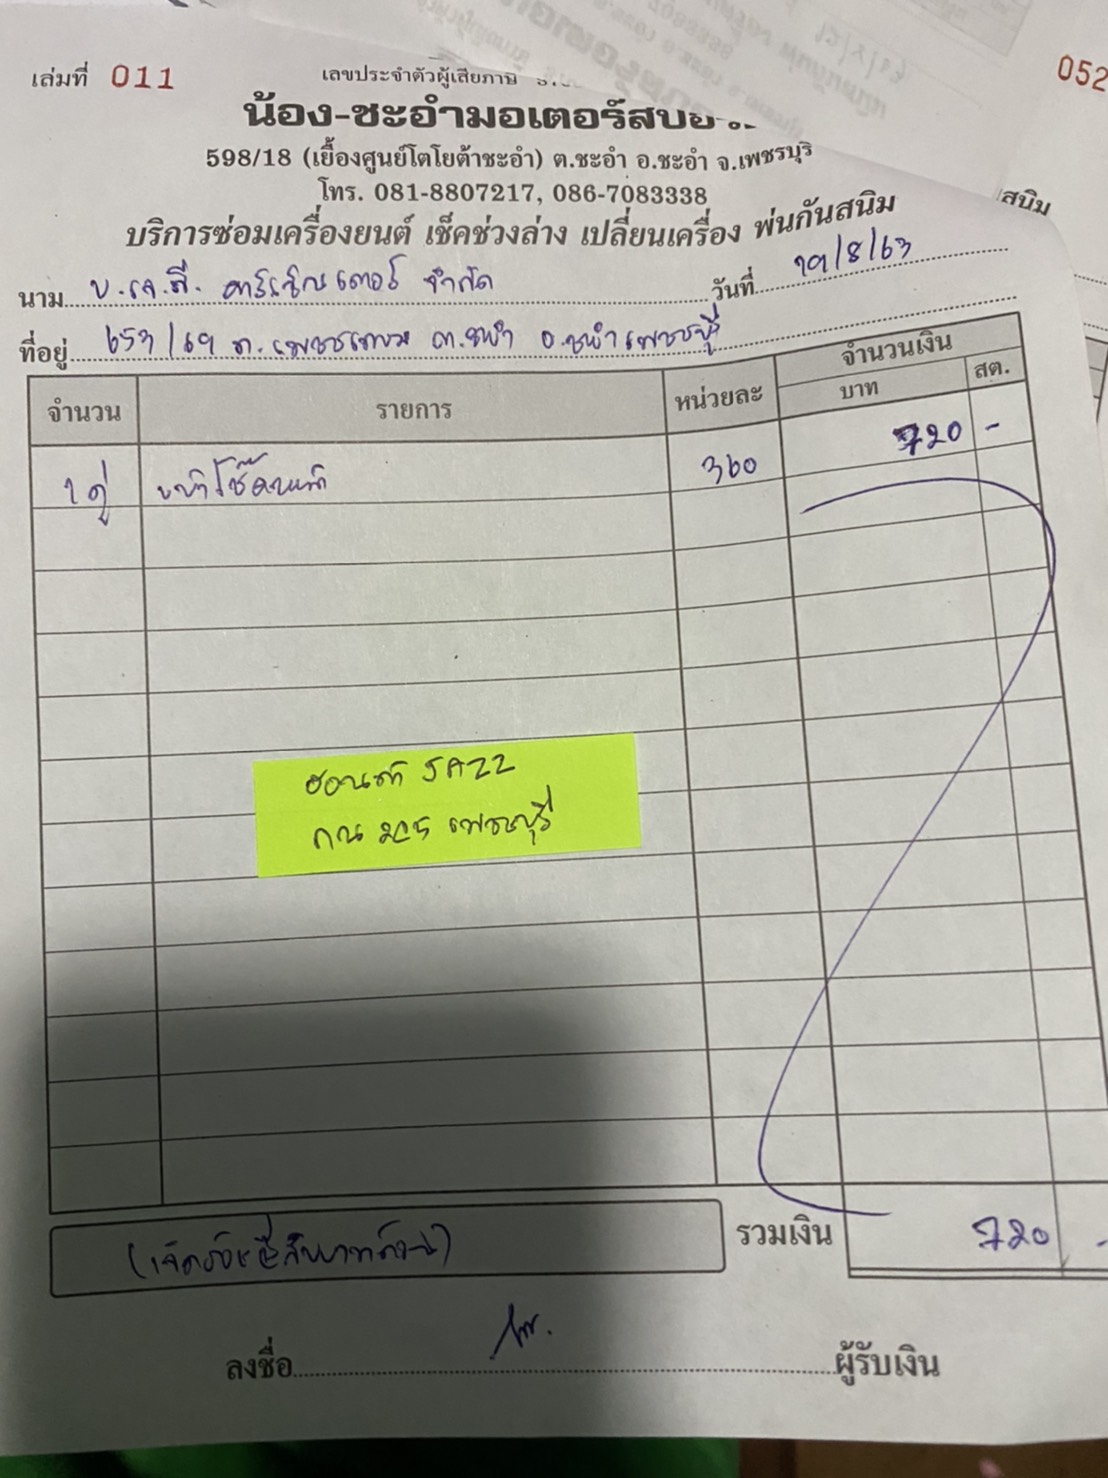 เล่มที่ 011
052
เลขประจำตัวผู้เสียภาษี
น้อง-ชะอำมอเตอร์สบอ
598/18 (เยื้องศูนย์โตโยต้าชะอำ) ต.ชะอำ อ.ชะอำ จ.เพชรบุริ
โทร. 081-8807217, 086-7083338
สนิม
บริการซ่อมเครื่องยนต์ เช็คช่วงล่าง เปลี่ยนเครื่อง พ่นกันสนิม
นาม บ. เจ.ที. จำกัด วันที่ 19/8/63
ที่อยู่ 653/69 ถ.เพชรเกษม ต.ชะอำ อ.ชะอำ เพชรบุรี
จำนวน รายการ หน่วยละ จำนวนเงิน
บาท สต.
1 คู่ 360 720 -
ฮอนด้า JAZZ
กน เพชรบุรี
(เจ็ดร้อยยี่สิบบาทถ้วน) รวมเงิน 720 -
ลงชื่อ ผู้รับเงิน